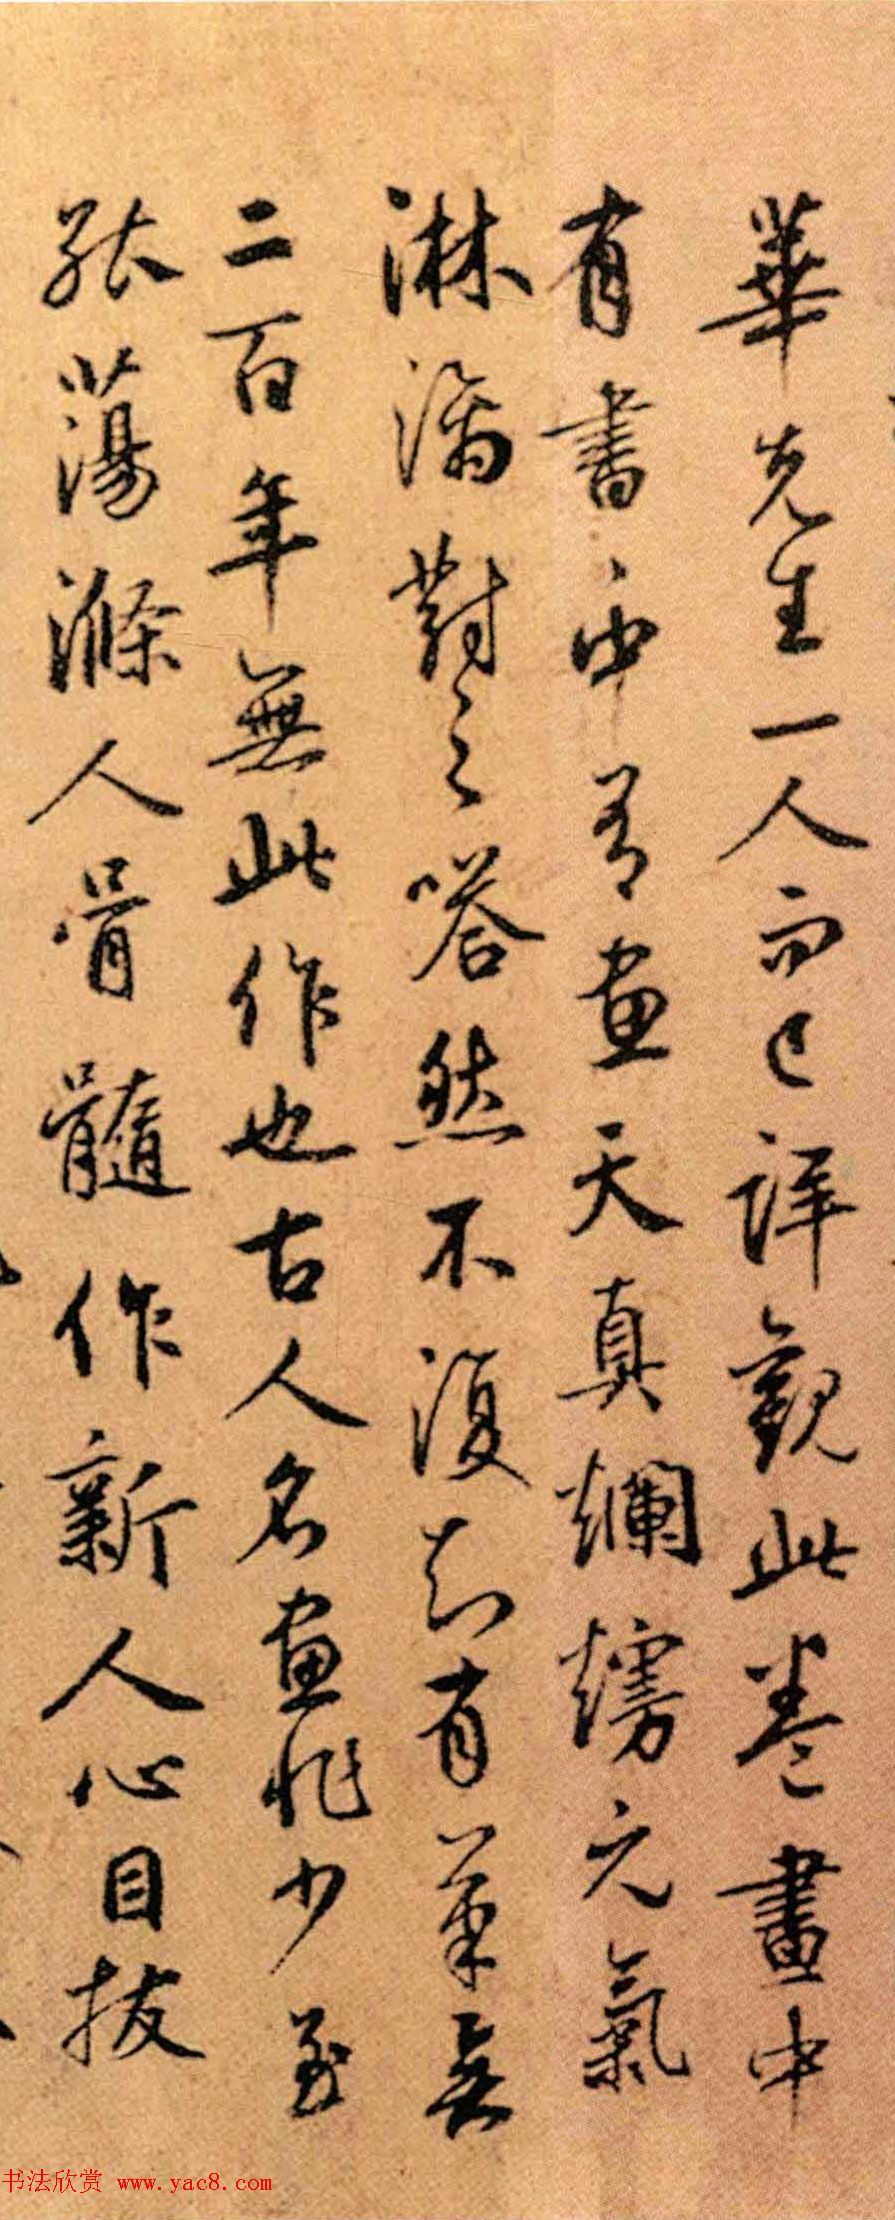 華先生一人而已詳觀此卷畫中
有書書中有畫天真爛熳元氣
淋漓對之嗒然不復知有筆矣
二百年無此作也古人名畫非少至
能蕩滌人骨髓作新人心目拔
书法欣赏 www.yac8.com